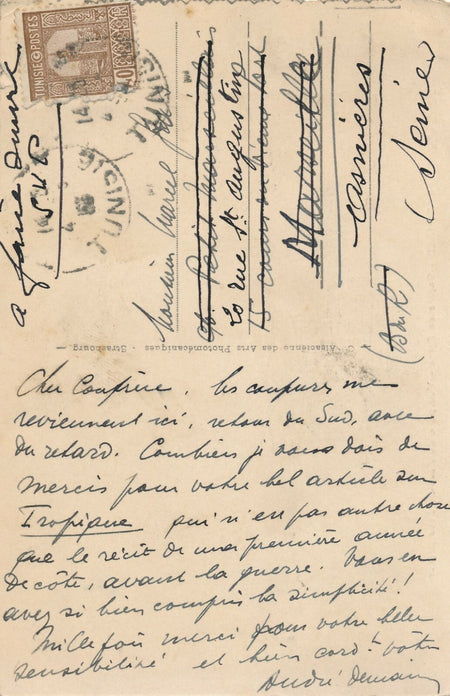 TUNISIE POSTES
40
BIGINI
TUNI
à faire suivre
S.V.P.
Monsieur Marcel
℅ Petit Marseillais
20 rue St Augustin
15
Marseille
Asnières
(Seine)
(B du R)
Cie Alsacienne des Arts Photomécaniques - Strasbourg
Cher Confrère, les coupures me
reviennent ici, retour du Sud, avec
du retard. Combien je vous dois de
mercis pour votre bel article sur
Tropique qui n'en pas autre chose
que le récit de ma première année
de côte, avant la guerre. Vous en
avez si bien compris la simplicité!
Mille fois merci pour votre belle
sensibilité et bien cordt vôtre
André Demaison